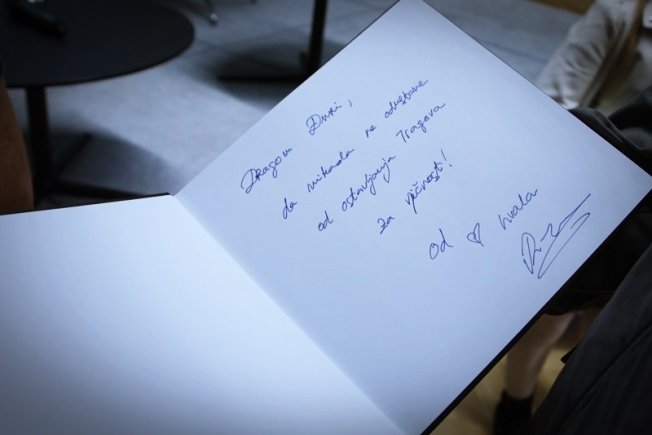 Dragom Duki,
da nikada ne odustane
od ostavljanja Tragova
za vječnost!
Od ♡ hvala